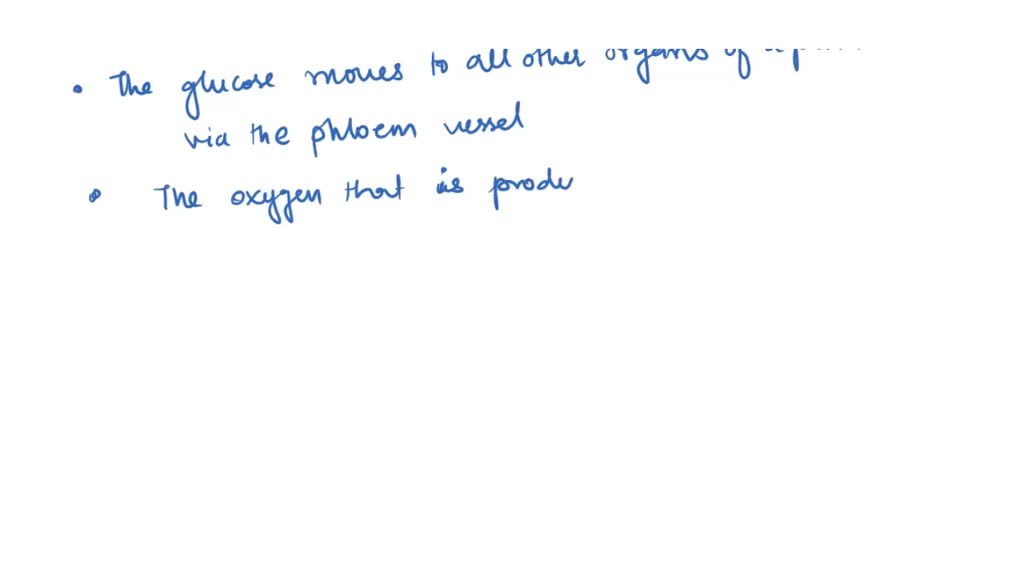 • The glucose moves to all other organs of a
via the phloem vessel
• The oxygen that is produ